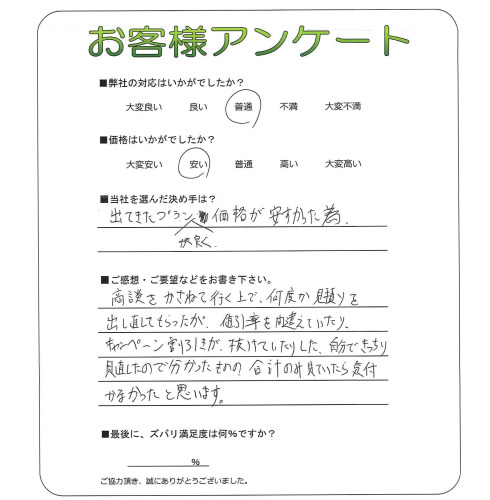 お客様アンケート
■弊社の対応はいかがでしたか？
大変良い 良い 普通 不満 大変不満
■価格はいかがでしたか？
大変安い 安い 普通 高い 大変高い
■当社を選んだ決め手は？
出てきたプラン 価格が安すかった為
が良く、
■ご感想・ご要望などをお書き下さい。
商談をかさねて行く上で、何度か見積りを
出し直してもらったが、値引率を間違えていたり、
キャンペーン割引きが、抜けていたりした、自分できっちり
見直したので分かったものの、合計のみ見ていたら気付
かなかったと思います。
■最後に、ズバリ満足度は何%ですか？
%
ご協力頂き、誠にありがとうございました。